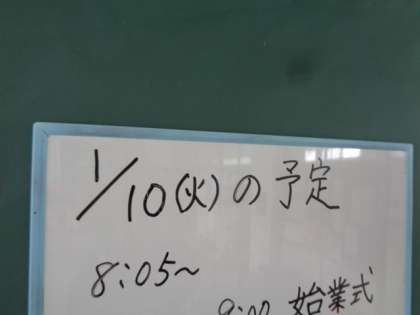 1/10(火)の予定
8:05~
9:00 始業式